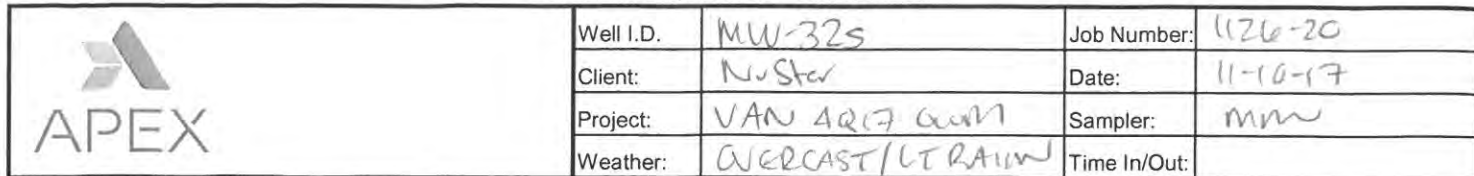 APEX
Well I.D. MW-32s Job Number: 1126-20
Client: NuStar Date: 11-10-17
Project: VAN 4Q17 GWM Sampler: MM
Weather: OVERCAST/LT RAIN Time In/Out: